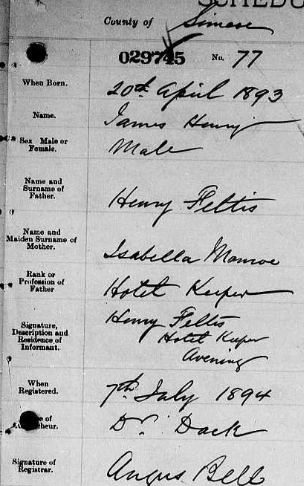 SCHEDU
County of Simcoe
029745 No. 77
When Born. 20th April 1893
Name. James Henry
Sex Male or
Female. Male
Name and
Surname of
Father. Henry Feltis
Name and
Maiden Surname of
Mother. Isabella Monroe
Rank or
Profession of
Father Hotel Keeper
Signature,
Description and
Residence of
Informant. Henry Feltis
Hotel Keeper
Avening
When
Registered. 7th July 1894
of
cheur. Dr. Dack
Signature of
Registrar. Angus Bell